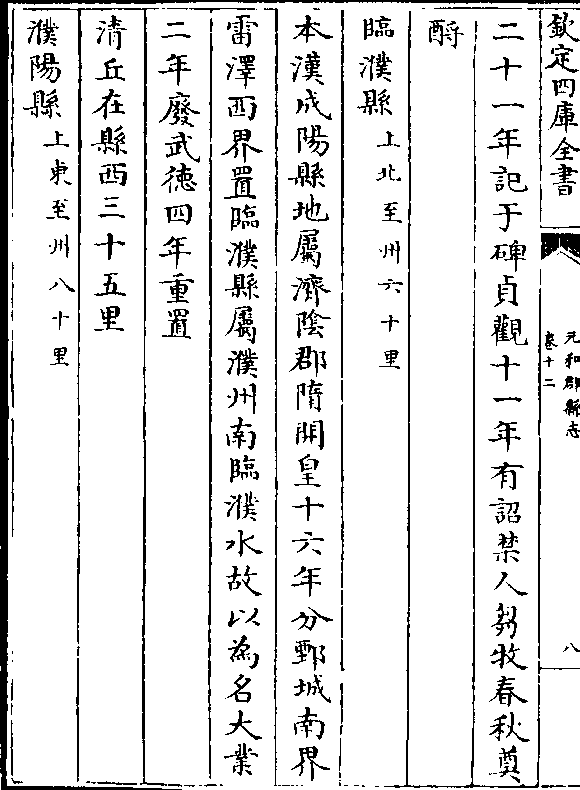 欽定四庫全書
元和郡縣志
卷十二
八
二十一年記于碑貞觀十一年有詔禁人芻牧春秋奠
酹
臨濮縣上北至州六十里
本漢成陽縣地屬濟陰郡隋開皇十六年分鄄城南界
雷澤西界置臨濮縣屬濮州南臨濮水故以為名大業
二年廢武德四年重置
清丘在縣西三十五里
濮陽縣上東至州八十里